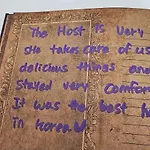 The Host is very
she takes care of us
delicious things and
Stayed very comfor
It was the best h
in Korea!